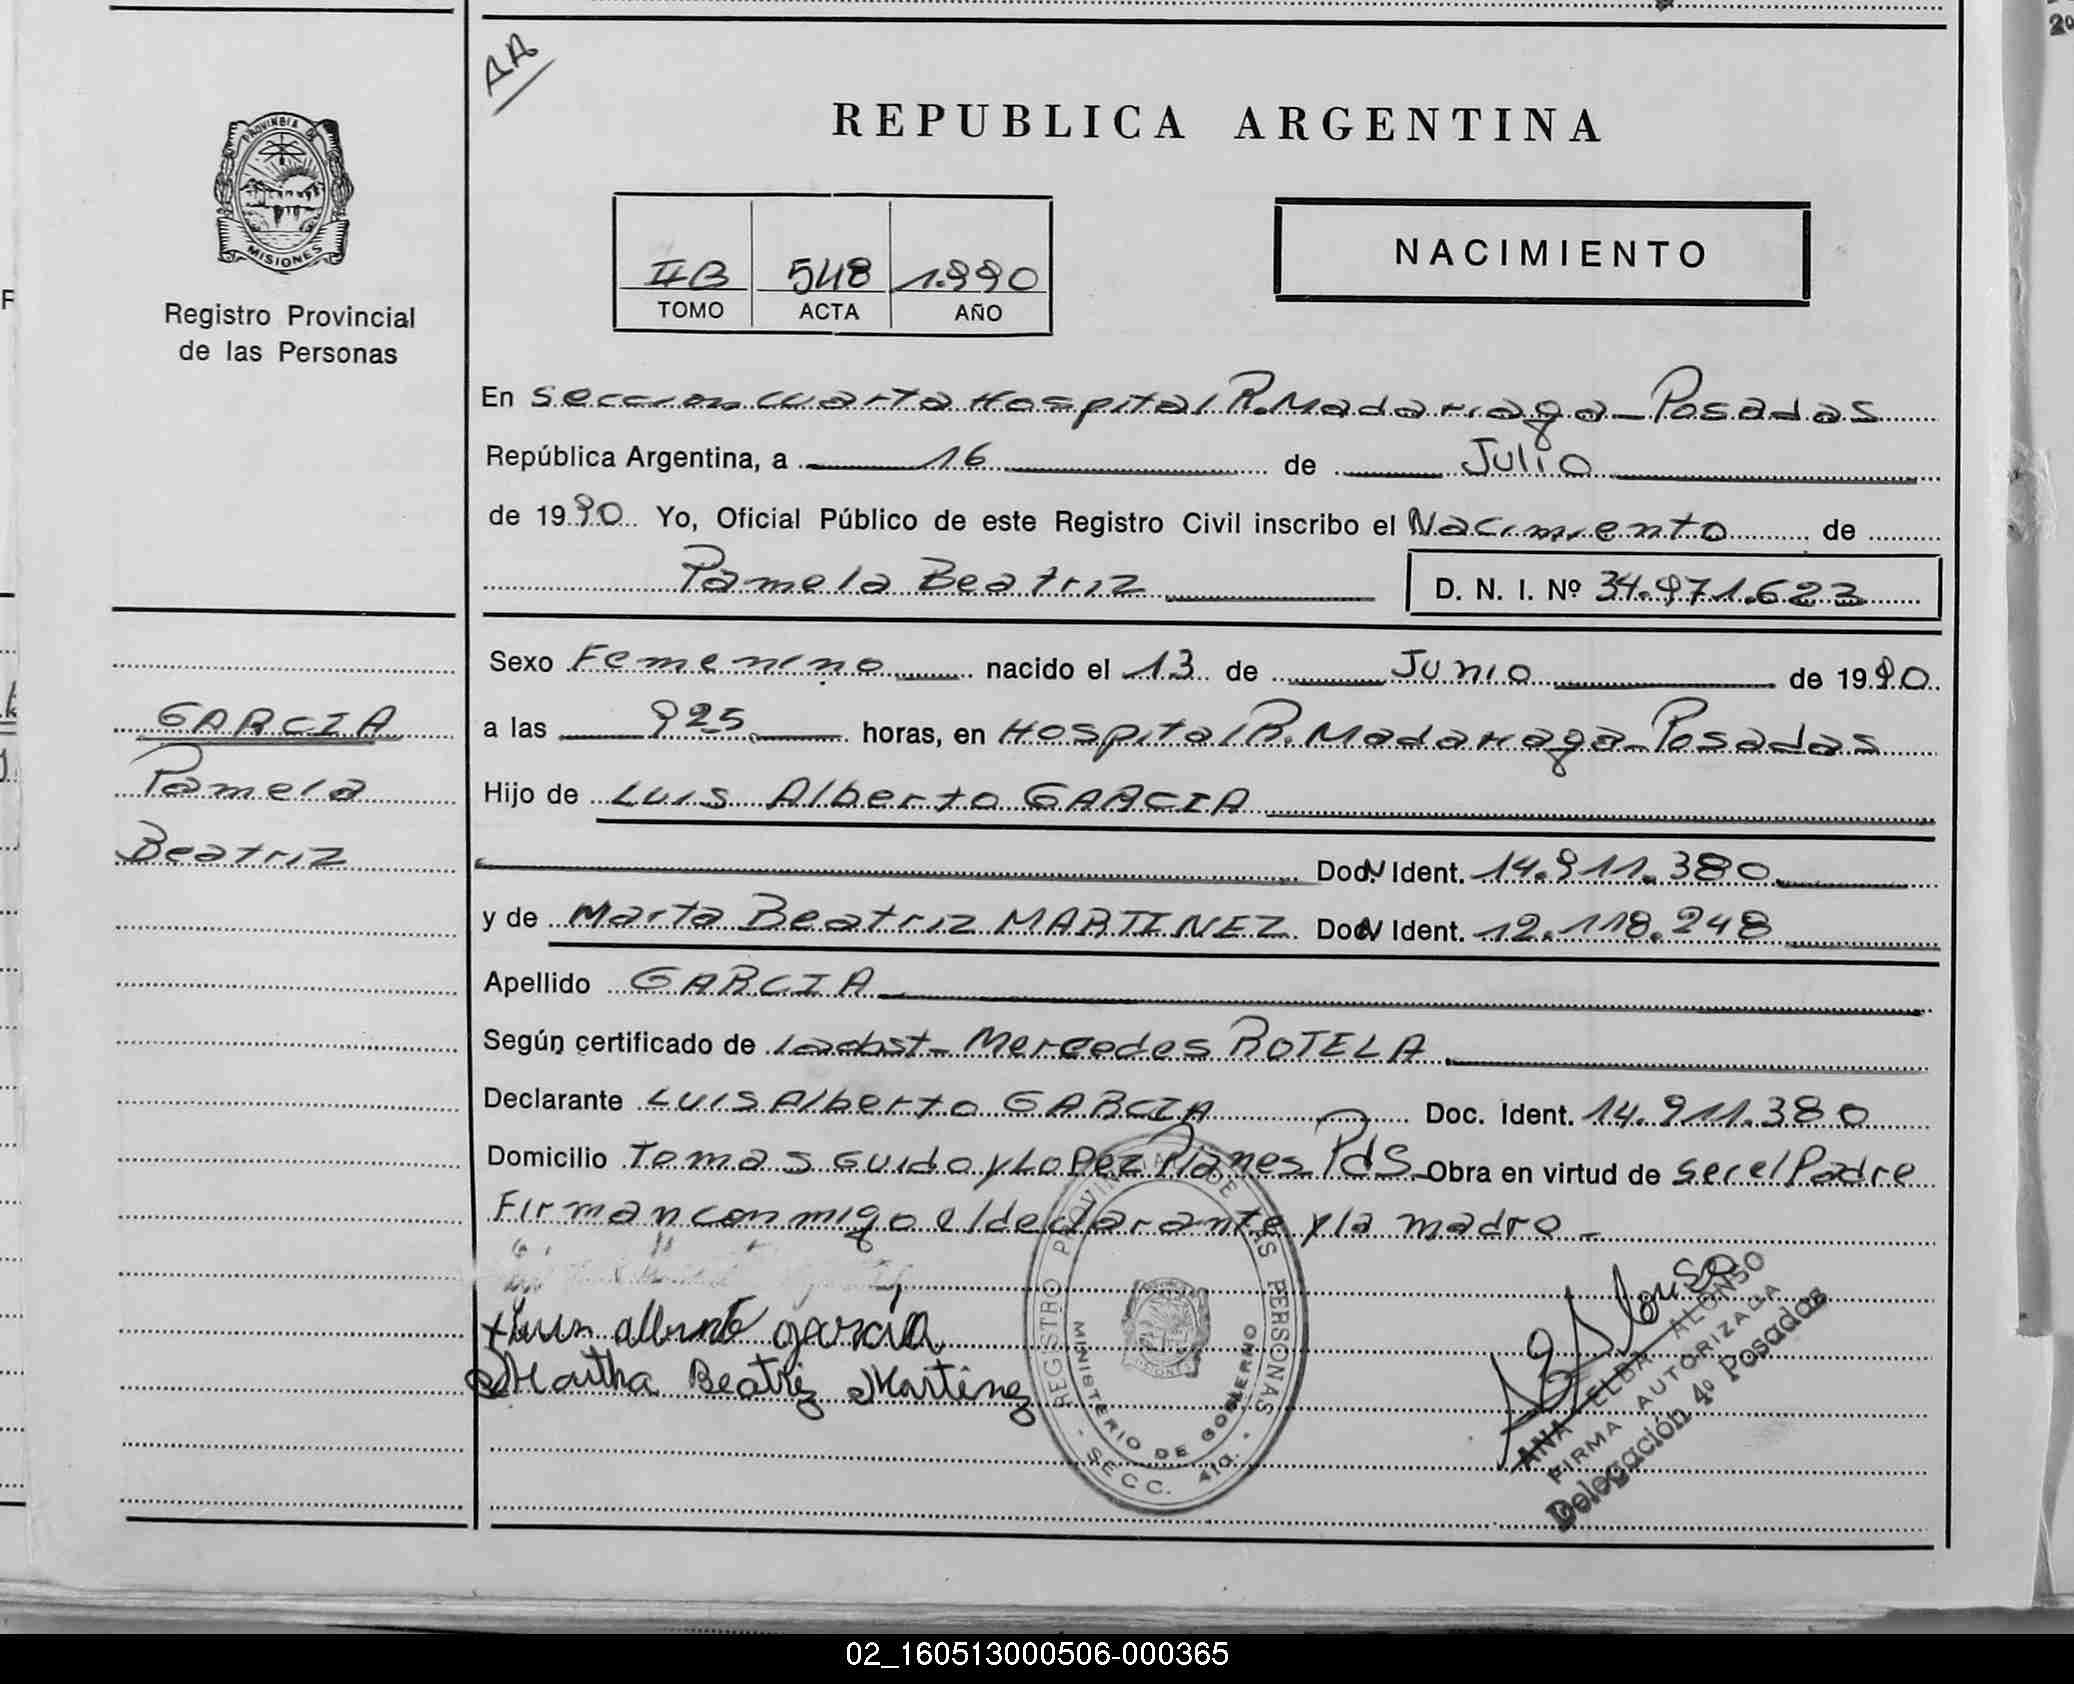 AA
REPUBLICA ARGENTINA
PROVINCIA DE
MISIONES
Registro Provincial
de las Personas
IIB 548 1.990
TOMO ACTA AÑO
NACIMIENTO
En Seccion cuarta Hospital R. Madariaga - Posadas
República Argentina, a 16 de Julio
de 1990 Yo, Oficial Público de este Registro Civil inscribo el Nacimiento de
Pamela Beatriz D. N. I. Nº 34.971.623
Sexo Femenino nacido el 13 de Junio de 1990
GARCIA
Pamela
Beatriz
a las 925 horas, en Hospital R. Madariaga - Posadas
Hijo de Luis Alberto GARCIA
Doc. N Ident. 14.911.380
y de Marta Beatriz MARTINEZ Doc. N Ident. 12.118.248
Apellido GARCIA
Según certificado de la obst - Mercedes ROTELA
Declarante Luis Alberto GARCIA Doc. Ident. 14.911.380
Domicilio Tomas Guido y Lopez Planes Pds - Obra en virtud de ser el Padre
Firman conmigo el declarante y la madre -
x Luis alberto garcia
Martha Beatriz Martinez
REGISTRO PROVINCIAL DE LAS PERSONAS
MINISTERIO DE GOBIERNO
- SECC. 4ta. -
Alonso
ANA ELBA ALONSO
FIRMA AUTORIZADA
Delegación 4º Posadas
02_160513000506-000365